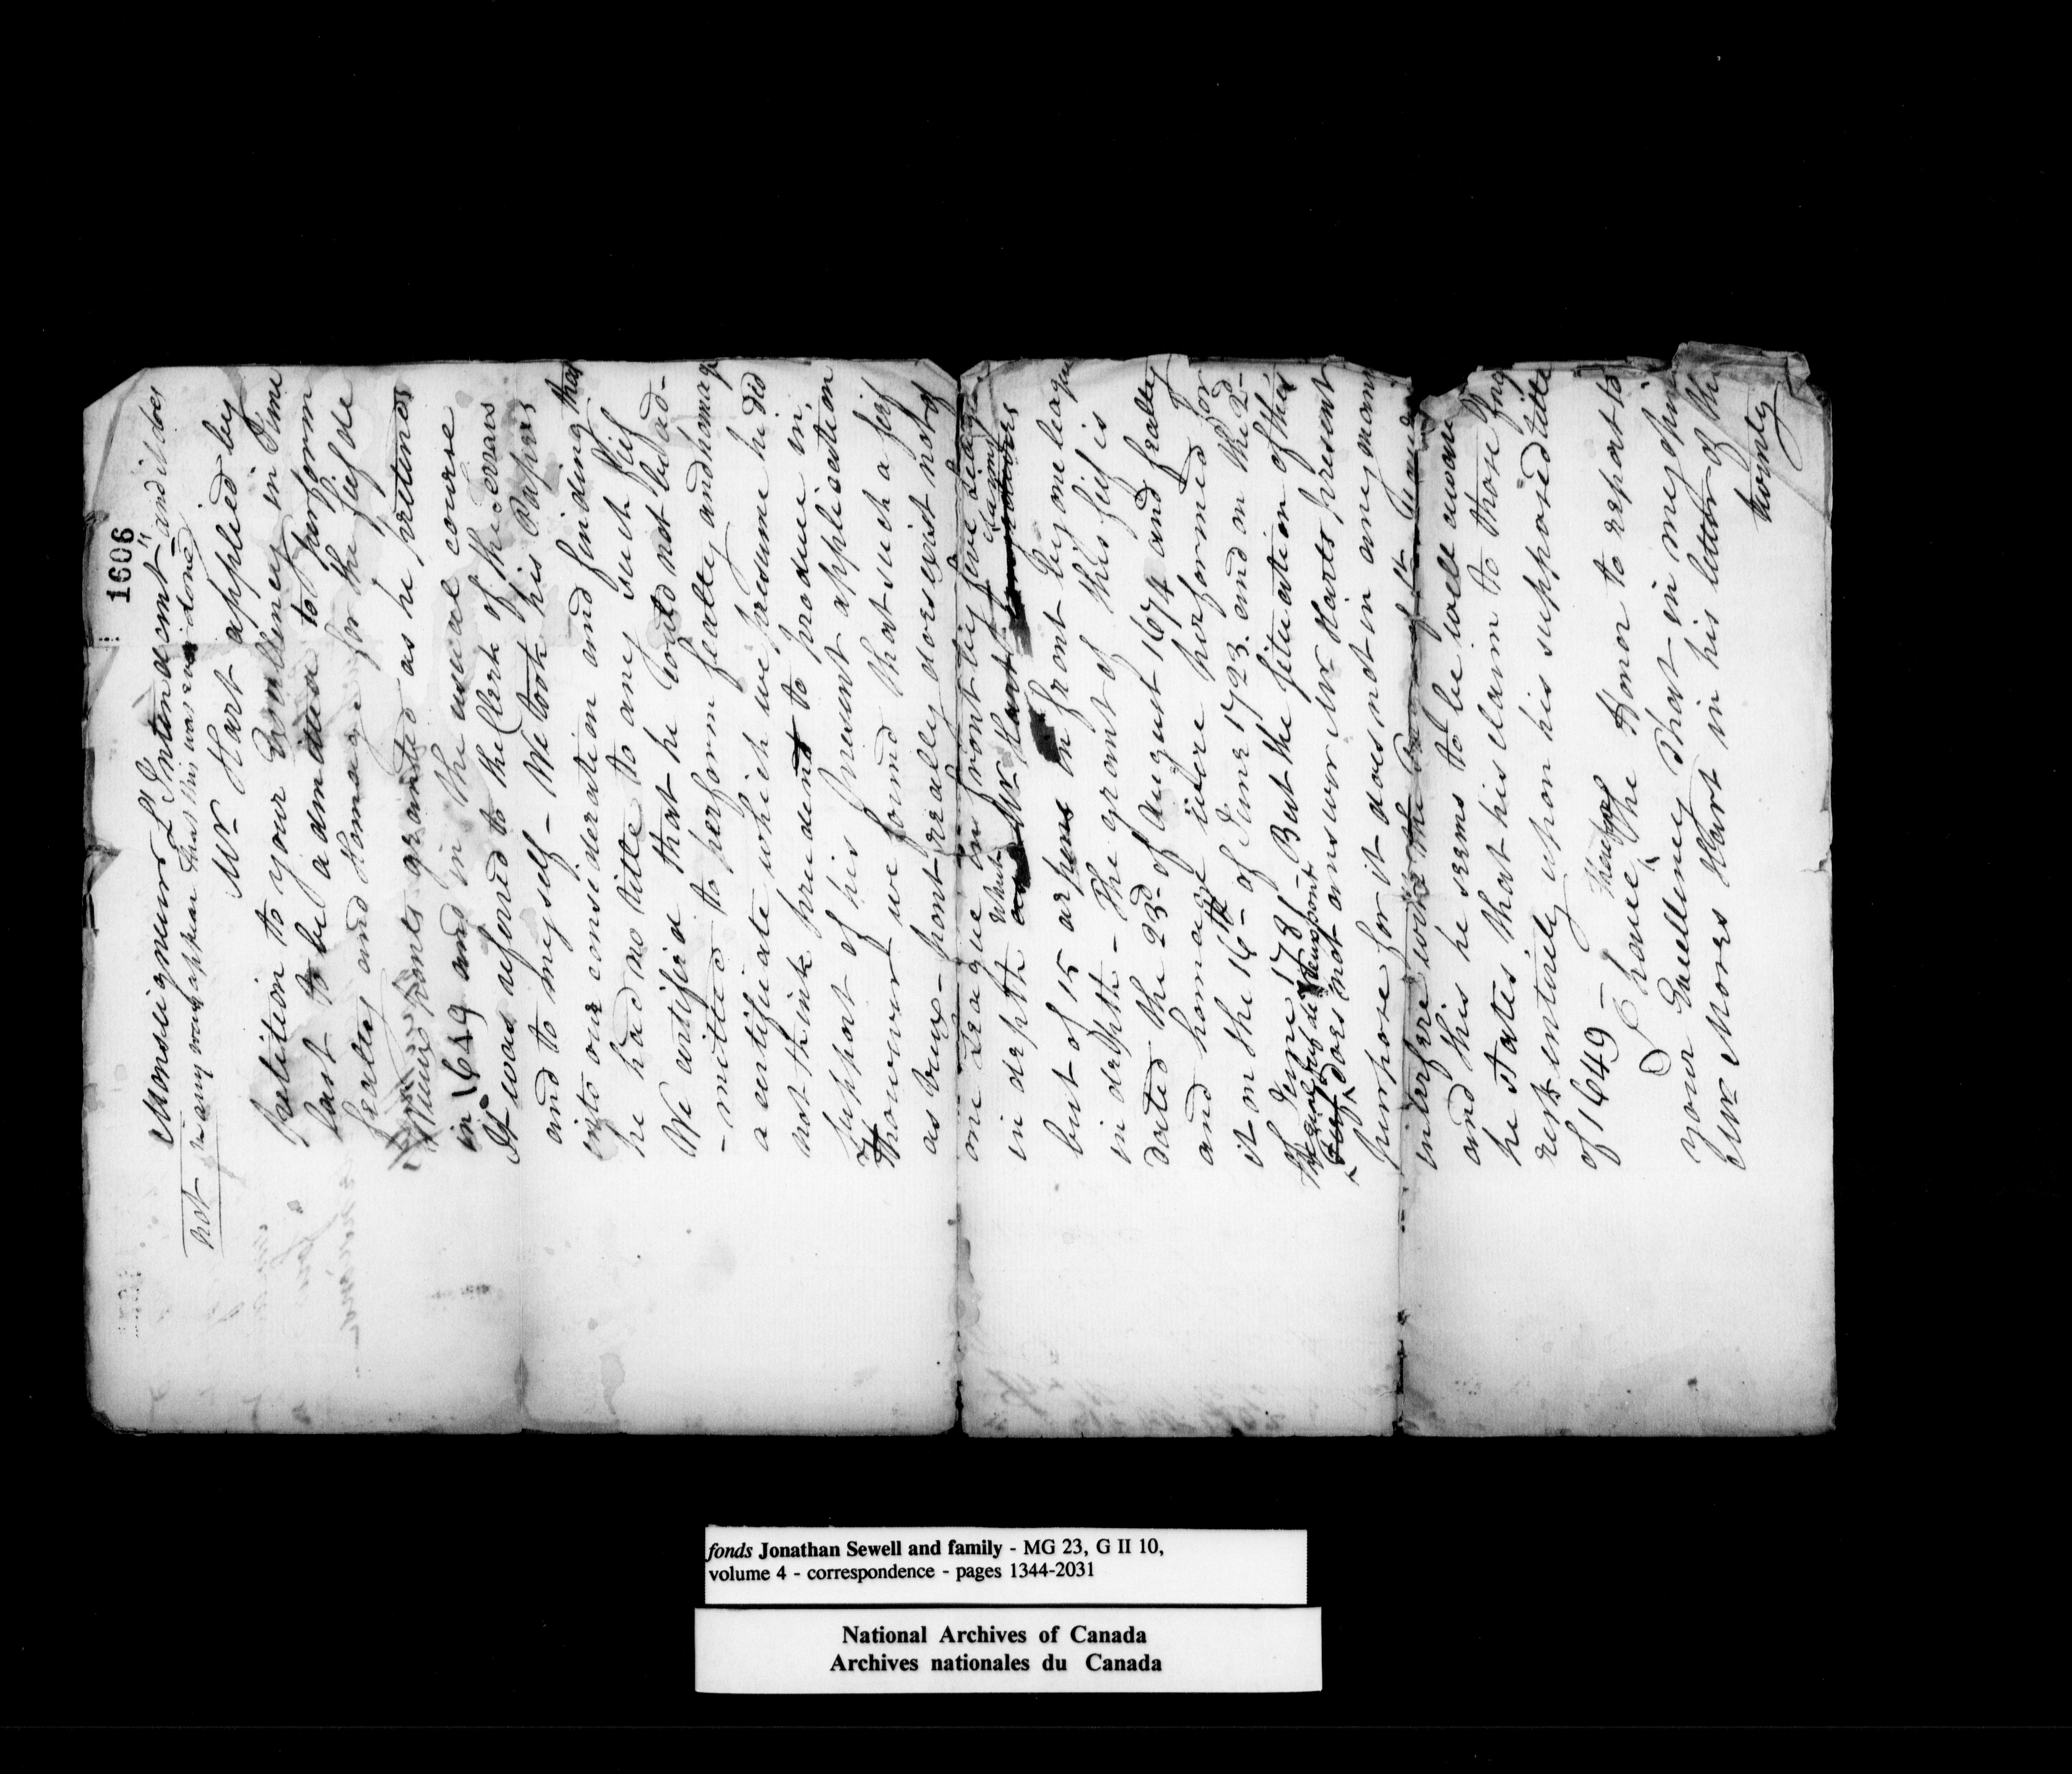 1606
Monseigneur L'Intendant" and it does
not in any way appear that this was ever done
Mr Hart applied by
petition to your Excellency in June
last to be admitted to perform
fealty and Homage for the fief de
vieux pont granted as he pretends
in 1649 and in the usual course
It was referred to the Clerk of the Terrars
and to myself - We took his Papers
into our consideration and finding that
he had no title to any such fief
We certified that he could not be ad-
-mitted to perform fealty and homage
a certificate which we presume he did
not think prudent to produce in
support of his present application
However we found that such a fief
as vieux-pont really does exist not of
one League in front by five Leagues
in depth which Mr Hart
but of 15 arpens in front by one league
in depth - The grant of this fief is
dated the 23d of August 1674 and fealty
and homage were performed for
it on the 16th of June 1723. and on the 2d
of June 1781 - But the situation of this
fief does not answer Mr Harts present
purpose for it does not in any manner
interfere with the
and this he seems to be well aware
he states that his claim to those
rests entirely upon his supposed title
of 1649 -
I have Therefore the Honor to report to
Your Excellency that in my opinion
Mr Moses Hart in his letter of the
twenty
fonds Jonathan Sewell and family - MG 23, G II 10,
volume 4 - correspondence - pages 1344-2031
National Archives of Canada
Archives nationales du Canada